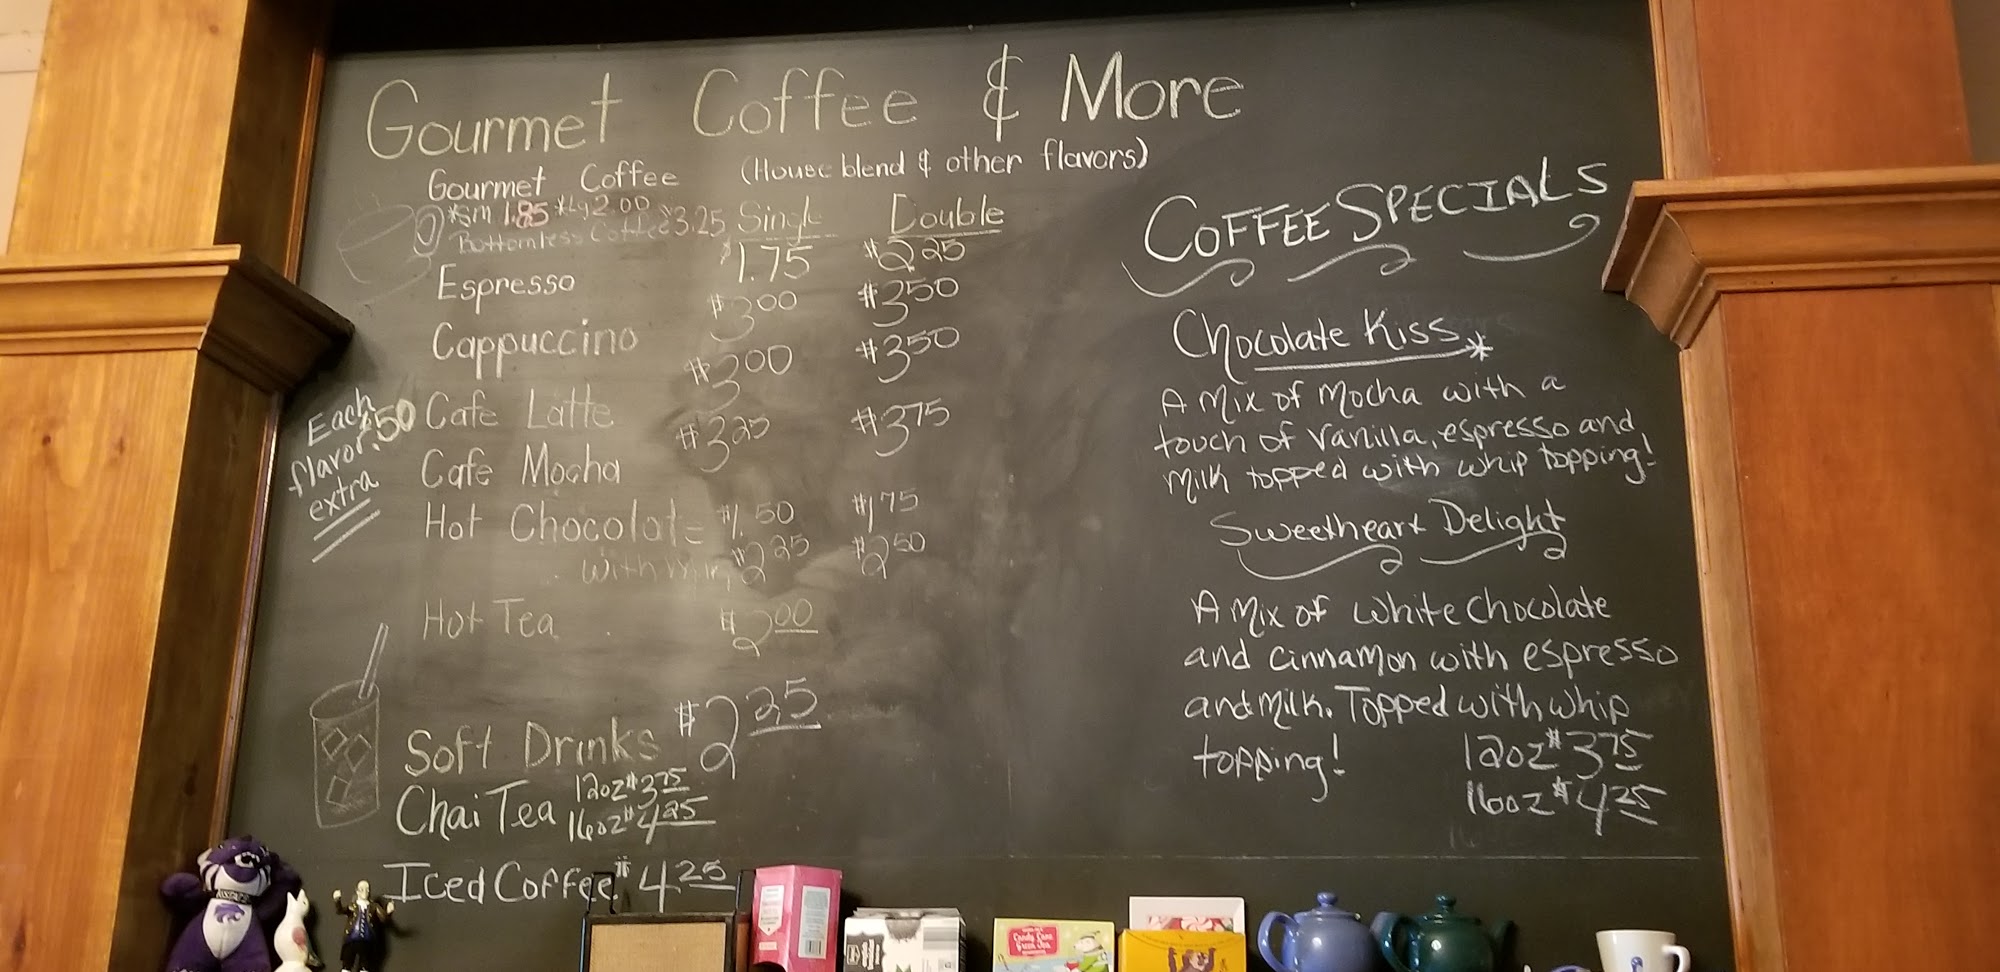 Gourmet Coffee & More
Gourmet Coffee (House blend & other flavors)
*sm 1.85 *Lg 2.00
Bottomless Coffee $3.25
Single Double
Espresso $1.75 $2.25
Cappuccino $3.00 $3.50
Cafe Latte $3.00 $3.50
Cafe Mocha $3.25 $3.75
Hot Chocolate $1.50 $1.75
with whip $2.25 $2.50
Hot Tea $2.00
Each
flavor .50
extra
Soft Drinks $2.25
Chai Tea 12oz $3.75
16oz $4.25
Iced Coffee $4.25
COFFEE SPECIALS
Chocolate Kiss *
A Mix of Mocha with a
touch of vanilla, espresso and
milk topped with whip topping!
Sweetheart Delight
A Mix of white chocolate
and cinnamon with espresso
and milk. Topped with whip
topping!
12oz $3.75
16oz $4.25
Candy Cane
Green Tea